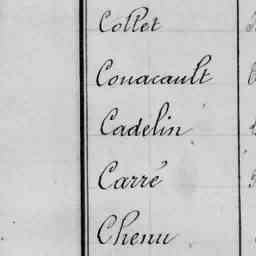 Collet
Couacault
Cadelin
Carré
Chenu